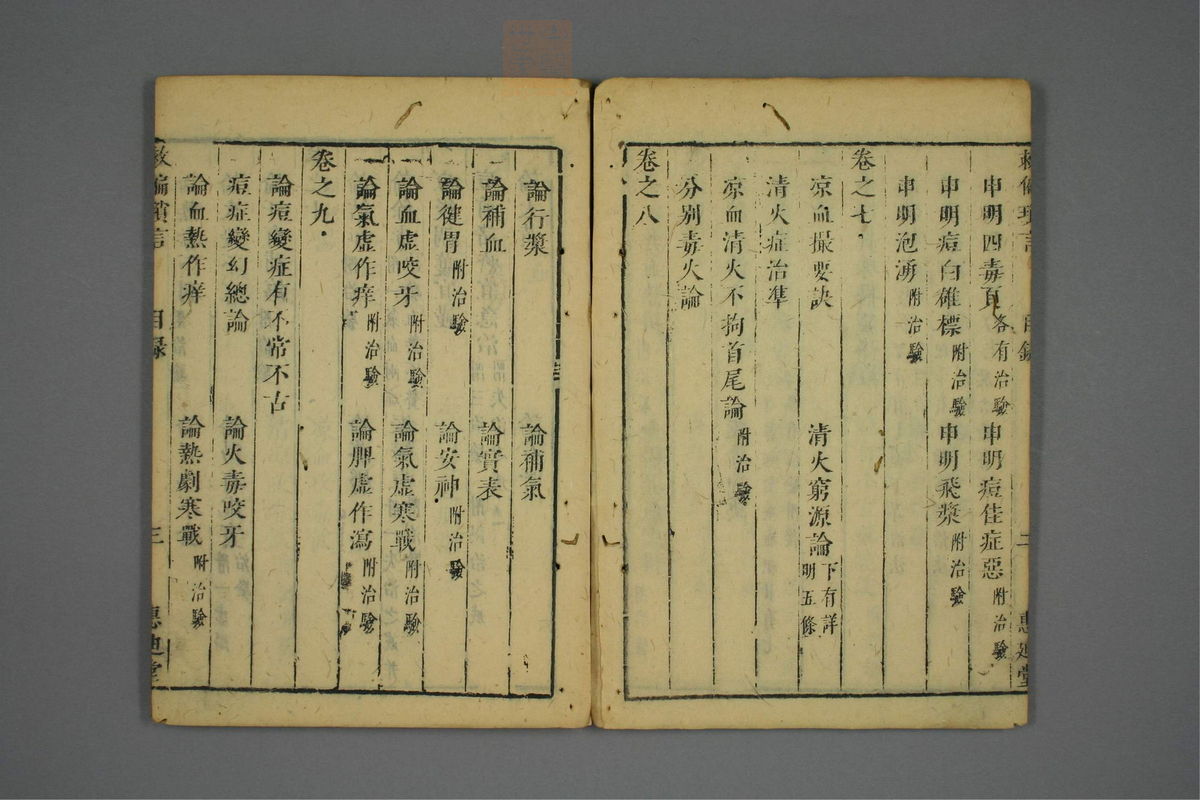 救偏瑣言 目錄 二 惠迪堂
申明四毒 各有治驗 申明痘佳症惡 附治驗
申明痘白雄標 附治驗 申明飛漿 附治驗
申明泡湧 附治驗
卷之七
凉血撮要訣 清火窮源論 下有詳明五條
清火症治準
凉血清火不拘首尾論 附治驗
分別毒火論
卷之八
論行漿 論補氣
論補血 論實表
論健胃 附治驗 論安神 附治驗
論血虛咬牙 附治驗 論氣虛寒戰 附治驗
論氣虛作痒 附治驗 論脾虛作瀉 附治驗
卷之九
論痘變症有不常不古
痘症變幻總論 論火毒咬牙
論血熱作痒 論熱劇寒戰 附治驗
救偏瑣言 目錄 三 惠迪堂